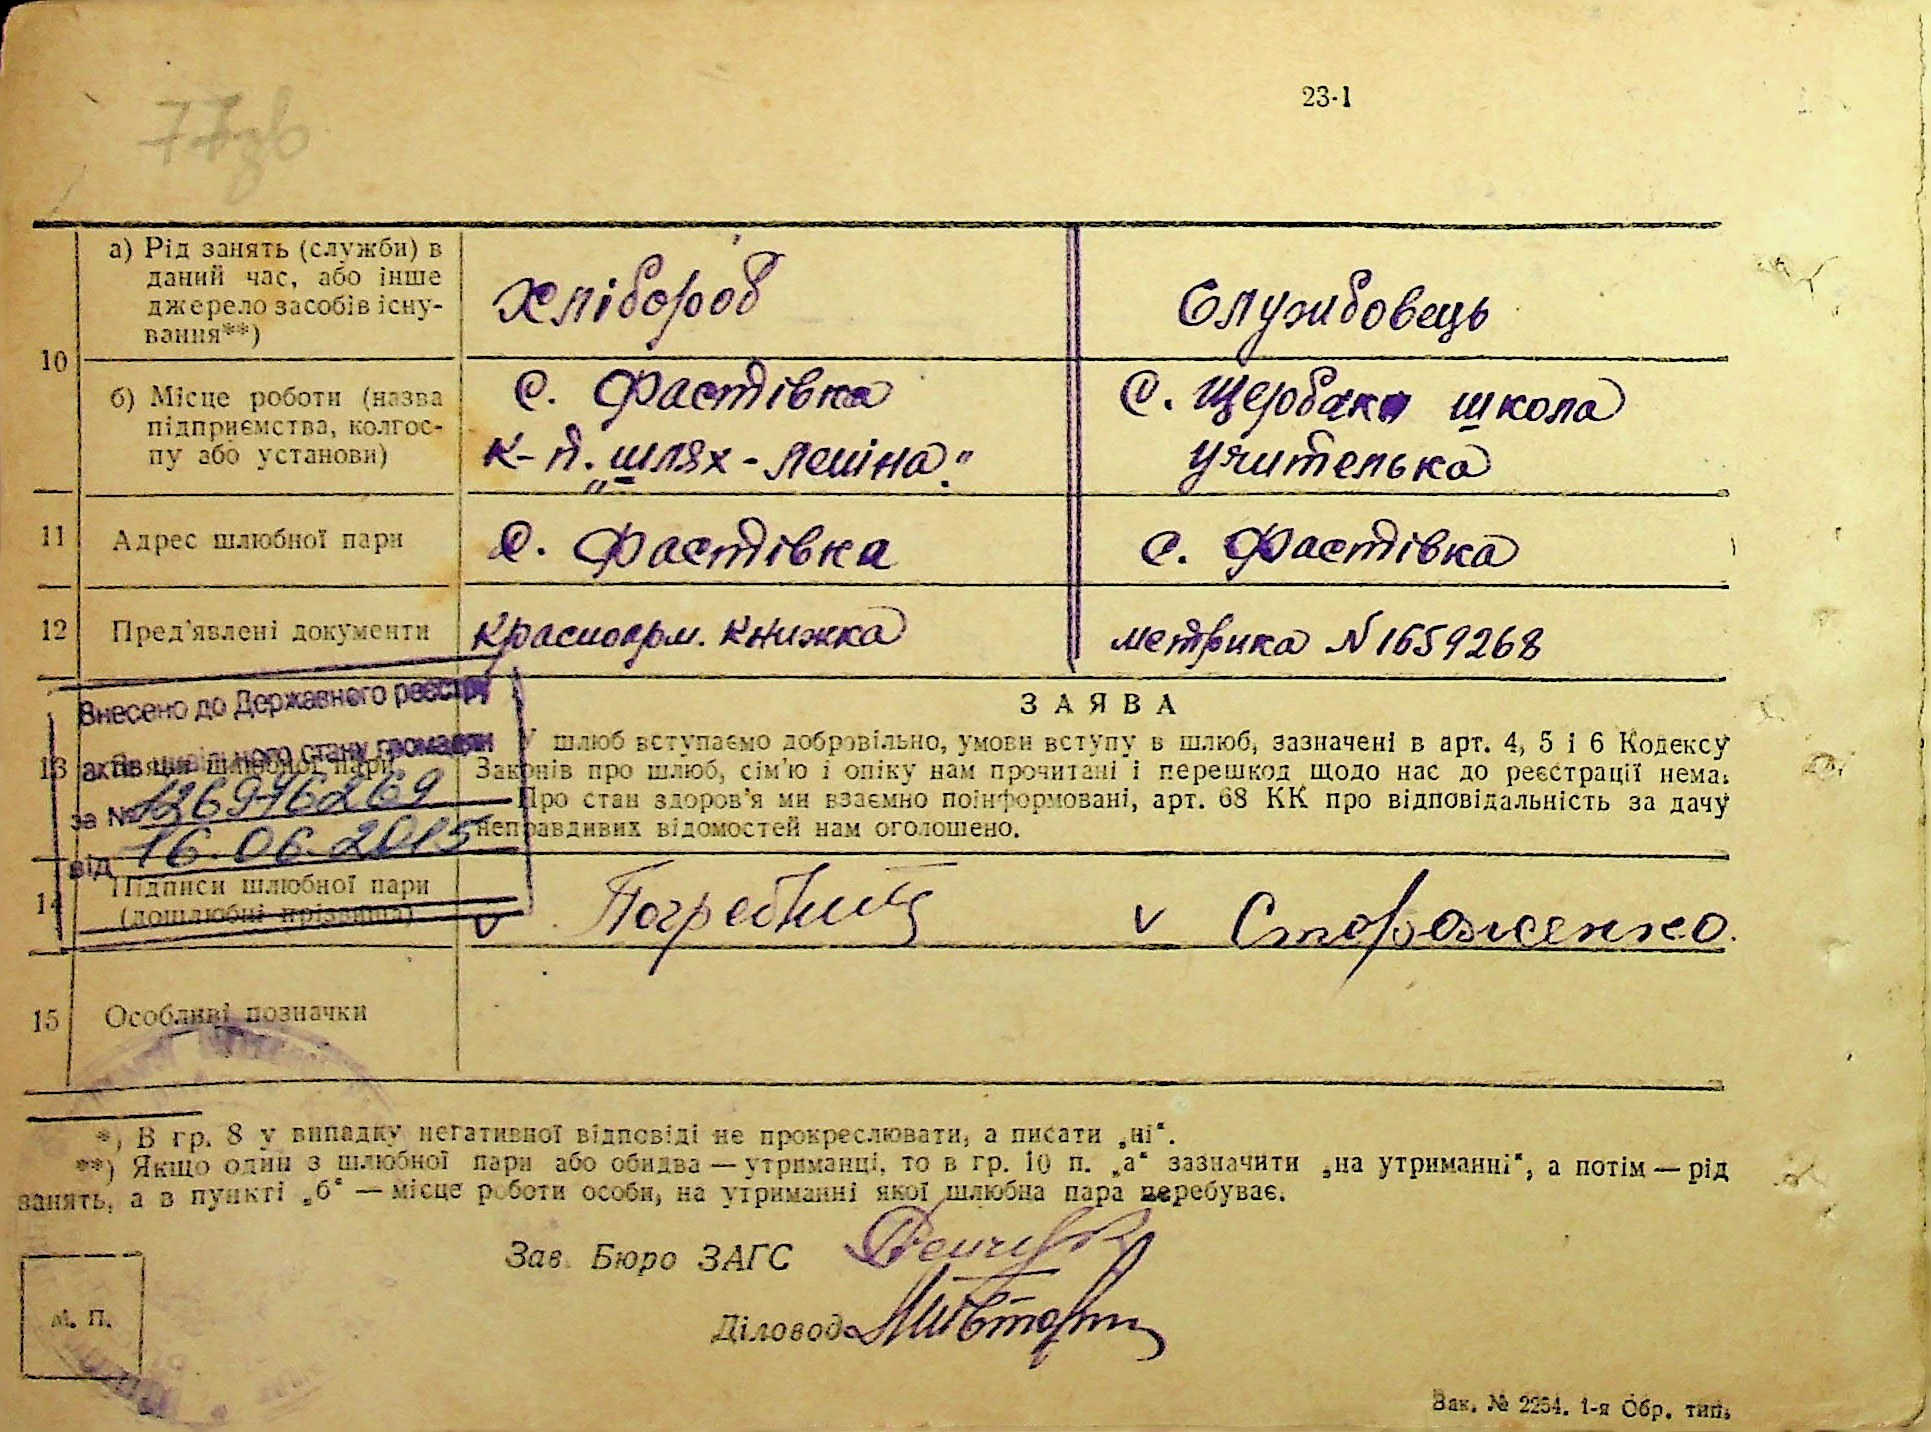 23-1
10
а) Рід занять (служби) в
даний час, або інше
джерело засобів існу-
вання**)
Хлібороб
Службовець
б) Місце роботи (назва
підприємства, колгос-
пу або установи)
с. Фастівка
к-п. „шлях-Леніна."
с. Щербаки школа
учителька
11
Адрес шлюбної пари
с. Фастівка
с. Фастівка
12
Пред'явлені документи
Красноарм. книжка
метрика № 1659268
Внесено до Державного реєстру
актів цивільного стану громадян
за № 126976269
від 16.06.2015
13
Заява шлюбної пари
ЗАЯВА
У шлюб вступаємо добровільно, умови вступу в шлюб, зазначені в арт. 4, 5 і 6 Кодексу
Законів про шлюб, сім'ю і опіку нам прочитані і перешкод щодо нас до реєстрації нема.
Про стан здоров'я ми взаємно поінформовані, арт. 68 КК про відповідальність за дачу
неправдивих відомостей нам оголошено.
14
Підписи шлюбної пари
(дошлюбні прізвища)
v Погребний
v Стороженко.
15
Особливі позначки
*) В гр. 8 у випадку негативної відповіді не прокреслювати, а писати „ні“.
**) Якщо один з шлюбної пари або обидва — утриманці, то в гр. 10 п. „а“ зазначити „на утриманні“, а потім — рід
занять, а в пункті „б“ — місце роботи особи, на утриманні якої шлюбна пара перебуває.
Зав. Бюро ЗАГС
Діловод
М. П.
Зак. № 2254. 1-я Обр. тип.